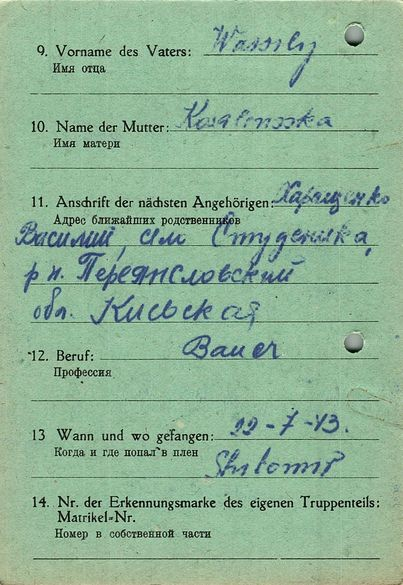 9. Vorname des Vaters: Wassilij
Имя отца
10. Name der Mutter:
Имя матери
11. Anschrift der nächsten Angehörigen: Харащенко
Адрес ближайших родственников
Василий, Студеника,
р н. Переяславский
обл. Киевская
12. Beruf: Bauer
Профессия
13 Wann und wo gefangen: 22-7-43.
Когда и где попал в плен
14. Nr. der Erkennungsmarke des eigenen Truppenteils:
Matrikel-Nr.
Номер в собственной части